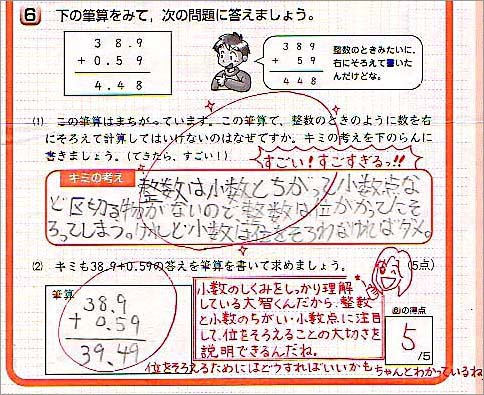 6 下の筆算をみて，次の問題に答えましょう。
3 8.9
+ 0.5 9
4.4 8
3 8 9
+ 5 9
4 4 8
整数のときみたいに，
右にそろえて書いた
んだけどな。
(1) この筆算はまちがっています。この筆算で，整数のときのように数を右
にそろえて計算してはいけないのはなぜですか。キミの考えを下のらんに
書きましょう。(できたら，すごい！)
すごい！すごすぎるっ!!
キミの考え
整数は小数とちがって小数点な
ど区切る物がないので整数は位がかってにそ
ろってしまう。けれど小数は位をそろわなければダメ。
(2) キミも38.9+0.59の答えを筆算を書いて求めましょう。
(5点)
筆算
38.9
+ 0.59
39.49
小数のしくみをしっかり理解
している大智くんだから、整数
と小数のちがい・小数点に注目
して、位をそろえることの大切さを
説明できるんだね。
位をそろえるためにはどうすればいいかも ちゃんとわかっているね
6の得点
5
/5